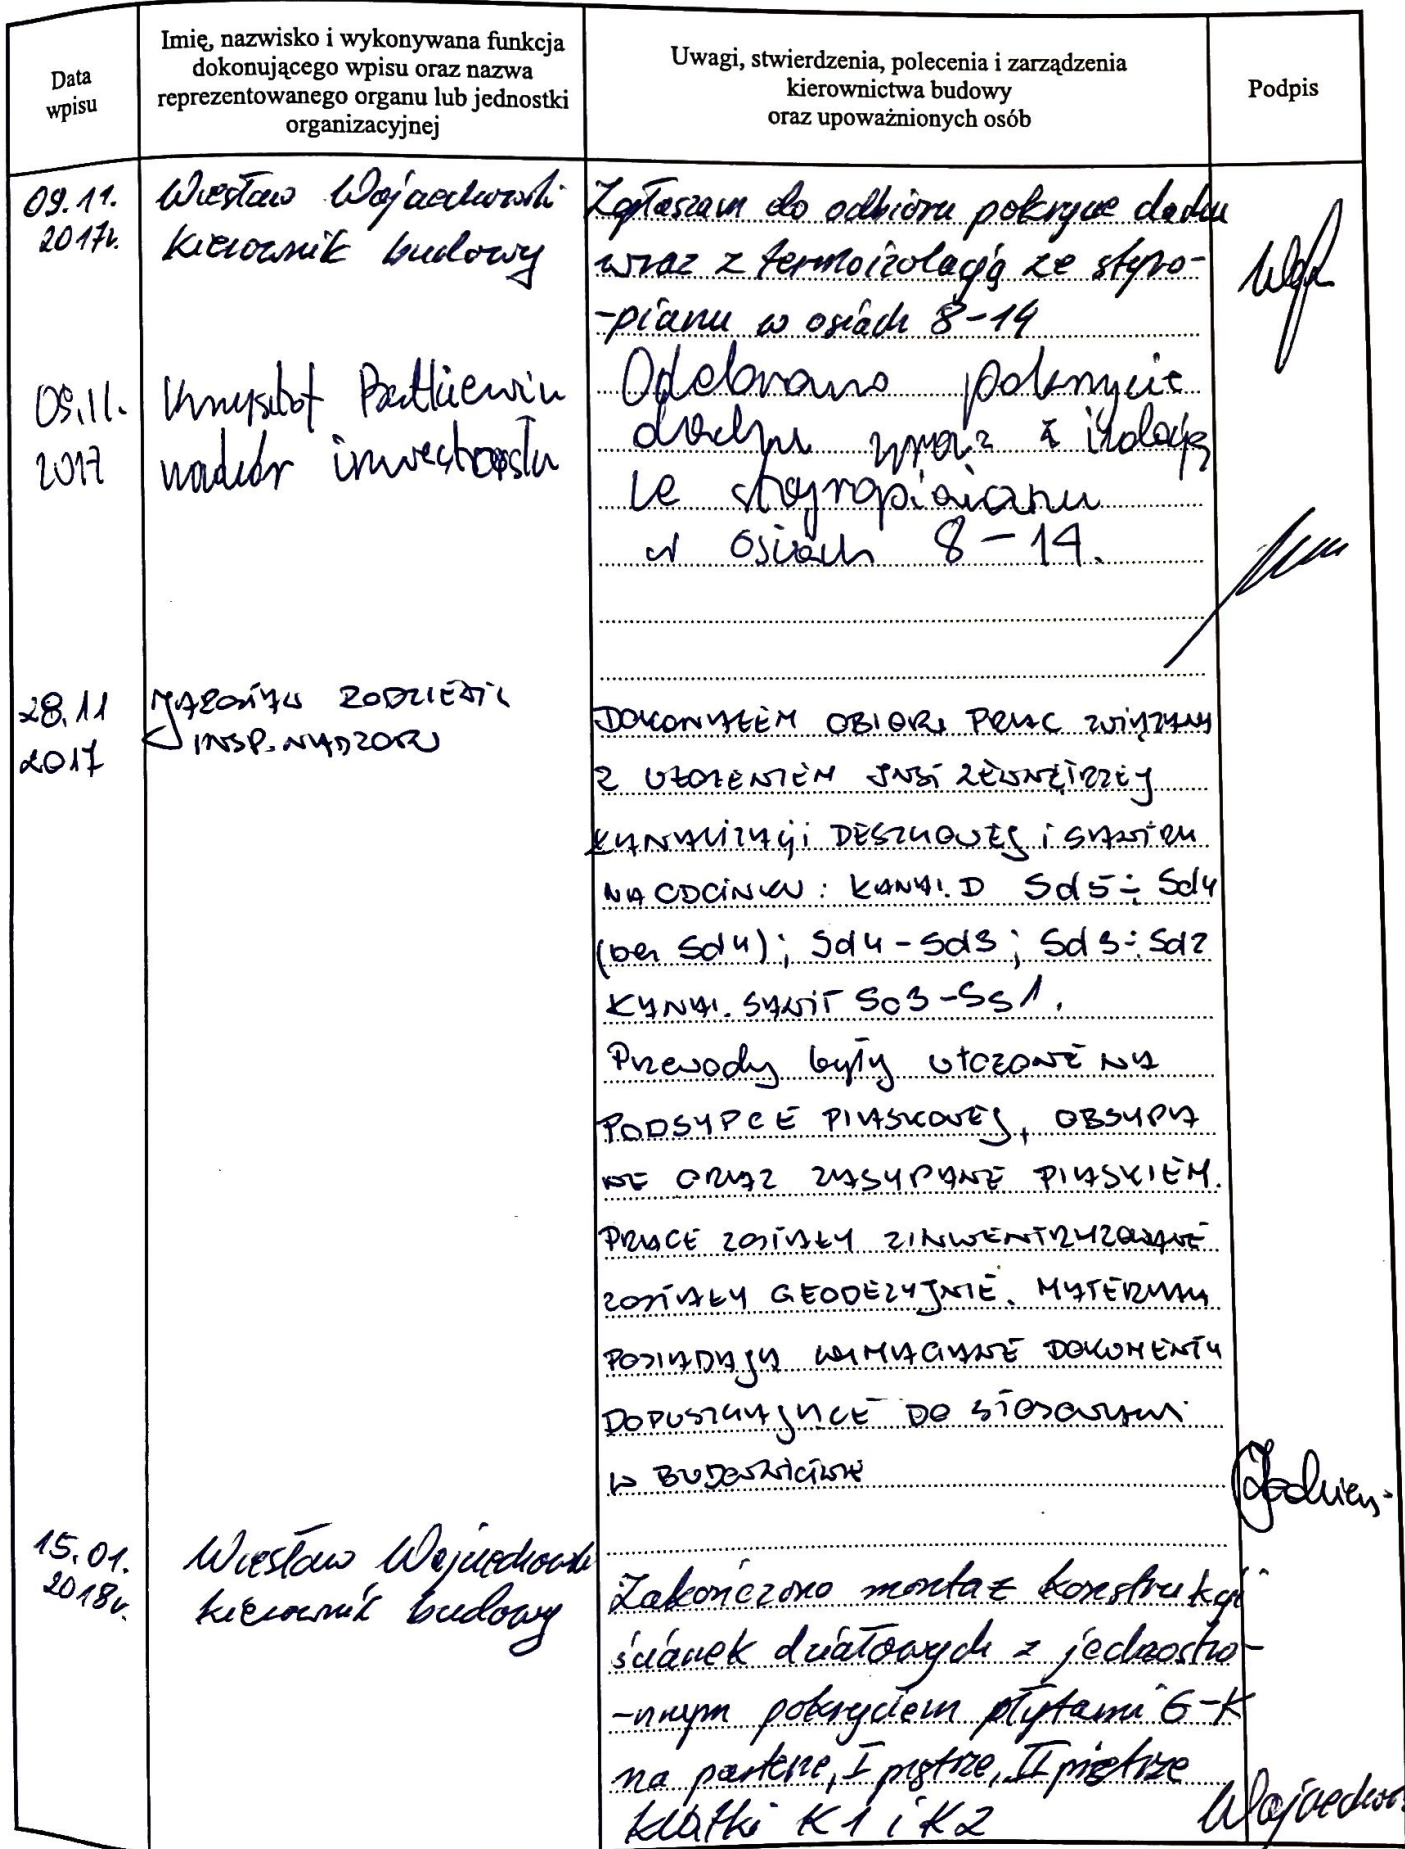 Data
wpisu
Imię, nazwisko i wykonywana funkcja
dokonującego wpisu oraz nazwa
reprezentowanego organu lub jednostki
organizacyjnej
Uwagi, stwierdzenia, polecenia i zarządzenia
kierownictwa budowy
oraz upoważnionych osób
Podpis
09.11.
2017r.
Wiesław Wojciechowski
kierownik budowy
Zgłaszam do odbioru pokrycie dachu
wraz z termoizolacją ze styro-
-pianu w osiach 8-14
09.11.
2017
Krzysztof
nadzór inwestorski
Odebrano pokrycie
dachu wraz z izolacją
ze
w osiach 8-14.
28.11
2017
JAROSŁAW
INSP. NADZORU
DOKONAŁEM OBIORU PRAC ZWIĄZANY
Z UŁOŻENIEM INST ZEWNĘTRZEJ
KANALIZACJI DESZCZOWEJ i SANITRN
NA ODCINKU: KANAL. D Sd5÷Sd4
(bez Sd4); Sd4-Sd3; Sd3÷Sd2
KANAL. SANIT So3-Ss1.
Przewody były UŁOŻONE NA
PODSYPCE PIASKOWEJ, OBSYPA
NE ORAZ ZASYPANE PIASKIEM.
PRACE ZOSTAŁY ZINWENTRYZOWANE
ZOSTAŁY GEODEZYJNIE. MATERIAŁY
POSIADAJĄ WYMAGANE DOKUMENTY
DOPUSZCZAJĄCE DO STOSOWANI
W BUDOWNICTWIE
15.01.
2018r.
Wiesław Wojciechowski
kierownik budowy
Zakończono montaż konstrukcji
ścianek działowych z jednostro-
-nnym pokryciem płytami G-K
na parterze, I piętrze, II piętrze
klatki K1 i K2